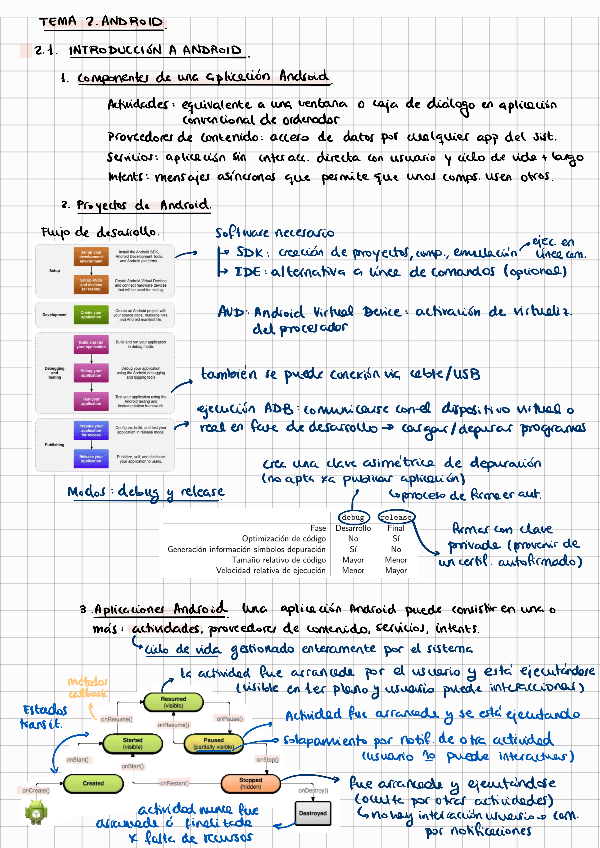 TEMA 2. ANDROID.
2.1. INTRODUCCIÓN A ANDROID.
1. Componentes de una aplicación Android.
Actividades: equivalente a una ventana o caja de diálogo en aplicación
convencional de ordenador
Proveedores de contenido: acceso de datos por cualquier app del sist.
Servicios: aplicación sin interacc. directa con usuario y ciclo de vida + largo
Intents: mensajes asíncronos que permite que unos comps. usen otros.
2. Proyectos de Android.
Flujo de desarollo.
Software necesario
SDK: creación de proyectos, comp., emulación → ejec. en línea com.
IDE: alternativa a línea de comandos (opcional)
Setup
Set up your development environment
Install the Android SDK, Android Development Tools, and Android platforms
Set up AVDs and devices for testing
Create Android Virtual Devices and connect hardware devices that will be used for testing
Development
Create your application
Create an Android project with your source code, resource files, and Android manifest file.
AVD: Android Virtual Device: activación de virtualiz.
del procesador
Debugging and Testing
Build and run your application
Build and run your application in debug mode.
Debug your application
Debug your application using the Android debugging and logging tools
Test your application
Test your application using the Android testing and instrumentation framework
también se puede conexión via cable/USB
Publishing
Prepare your application for release
Configure, build, and test your application in release mode.
Release your application
Publicize, sell, and distribute your application to users.
ejecución ADB: comunicarse con el dispositivo virtual o
real en fase de desarrollo → cargar/depurar programas
crea una clave asimétrica de depuración
(no apta xa publicar aplicación)
↳ proceso de firma er aut.
Modos: debug y release
debug release
Fase Desarrollo Final
Optimización de código No Sí
Generación información símbolos depuración Sí No
Tamaño relativo de código Mayor Menor
Velocidad relativa de ejecución Menor Mayor
Firmar con clave
privada (provenir de
un certif. autofirmado)
3. Aplicaciones Android. Una aplicación Android puede consistir en una o
más: actividades, proveedores de contenido, servicios, intents.
↳ ciclo de vida gestionado enteramente por el sistema
la actividad fue arrancada por el usuario y está ejecutándose
(visible en 1er plano y usuario puede interaccionar)
métodos callback
Estados transit.
Resumed (visible)
onResume()
onResume()
onPause()
Actividad fue arrancada y se está ejecutando
Started (visible)
Paused (partially visible)
Solapamiento por notif. de otra actividad
(usuario no puede interactuar)
onStart()
onStart()
onStop()
onCreate()
Created
onRestart()
Stopped (hidden)
onDestroy()
Destroyed
fue arrancada y ejecutándose
(oculta por otras actividades)
↳ no hay interacción usuario → com.
por notificaciones
actividad nunca fue
arrancada ó finalizada
x falta de recursos